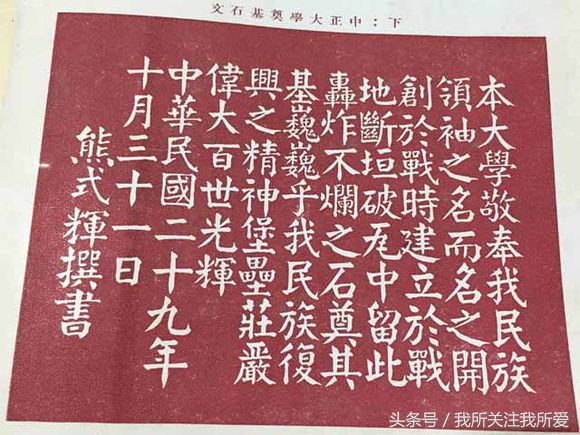 下：中正大學奠基石文
本大學敬奉我民族
領袖之名而名之開
創於戰時建立於戰
地斷垣破瓦中留此
轟炸不爛之石奠其
基巍巍乎我民族復
興之精神堡壘莊嚴
偉大百世光輝
中華民國二十九年
十月三十一日
熊式輝撰書
头条号 / 我所关注我所爱